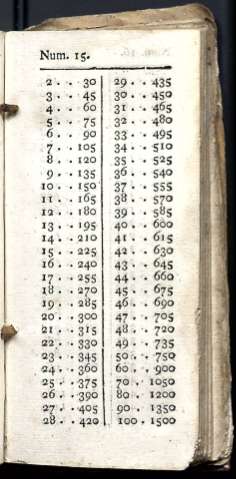 Num. 15.
2 . . 30 29 . . 435
3 . . 45 30 . . 450
4 . . 60 31 . . 465
5 . . 75 32 . . 480
6 . . 90 33 . . 495
7 . . 105 34 . . 510
8 . . 120 35 . . 525
9 . . 135 36 . . 540
10 . . 150 37 . . 555
11 . . 165 38 . . 570
12 . . 180 39 . . 585
13 . . 195 40 . . 600
14 . . 210 41 . . 615
15 . . 225 42 . . 630
16 . . 240 43 . . 645
17 . . 255 44 . . 660
18 . . 270 45 . . 675
19 . . 285 46 . . 690
20 . . 300 47 . . 705
21 . . 315 48 . . 720
22 . . 330 49 . . 735
23 . . 345 50 . . 750
24 . . 360 60 . . 900
25 . . 375 70 . . 1050
26 . . 390 80 . . 1200
27 . . 405 90 . . 1350
28 . . 420 100 . 1500